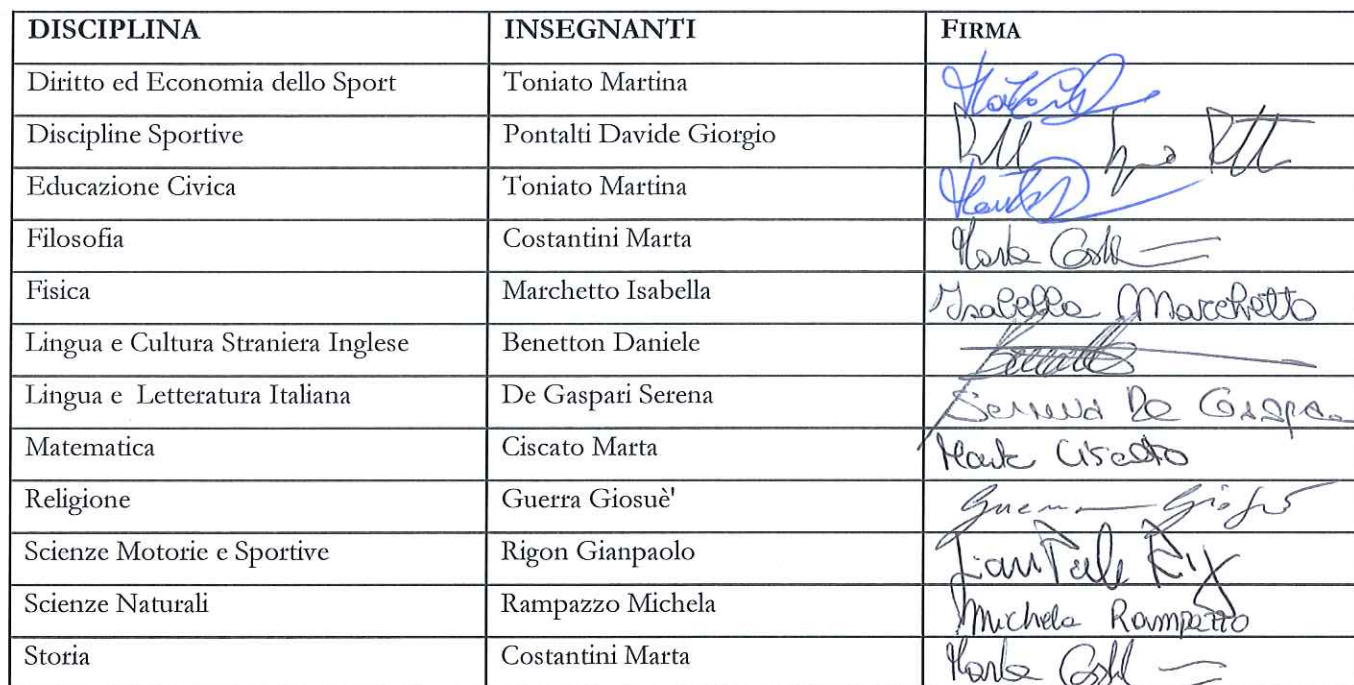 DISCIPLINA INSEGNANTI FIRMA
Diritto ed Economia dello Sport Toniato Martina
Discipline Sportive Pontalti Davide Giorgio
Educazione Civica Toniato Martina
Filosofia Costantini Marta
Fisica Marchetto Isabella Isabella Marchetto
Lingua e Cultura Straniera Inglese Benetton Daniele
Lingua e Letteratura Italiana De Gaspari Serena Serena De
Matematica Ciscato Marta Ciscato
Religione Guerra Giosuè'
Scienze Motorie e Sportive Rigon Gianpaolo
Scienze Naturali Rampazzo Michela Michela Rampazzo
Storia Costantini Marta